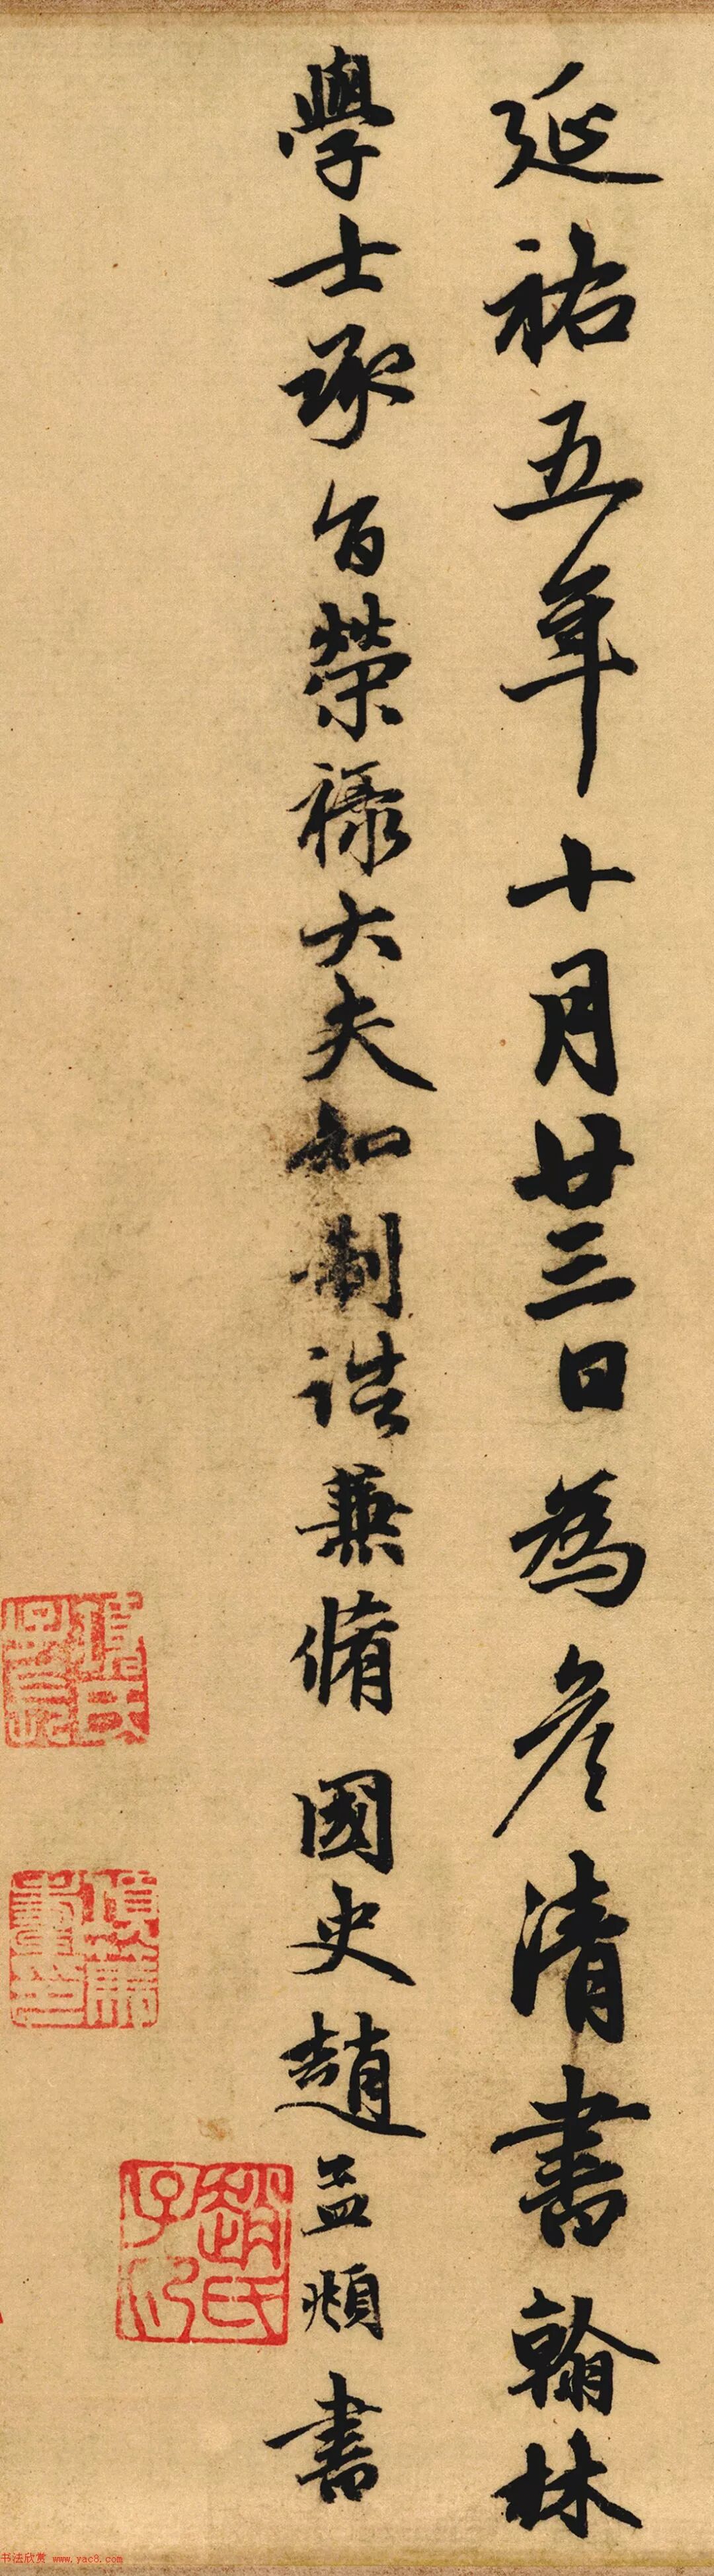 延祐五年十月廿三日為彥清書翰林
學士承旨榮祿大夫知制誥兼脩國史趙孟頫書
趙氏子印
书法欣赏 www.yac8.com